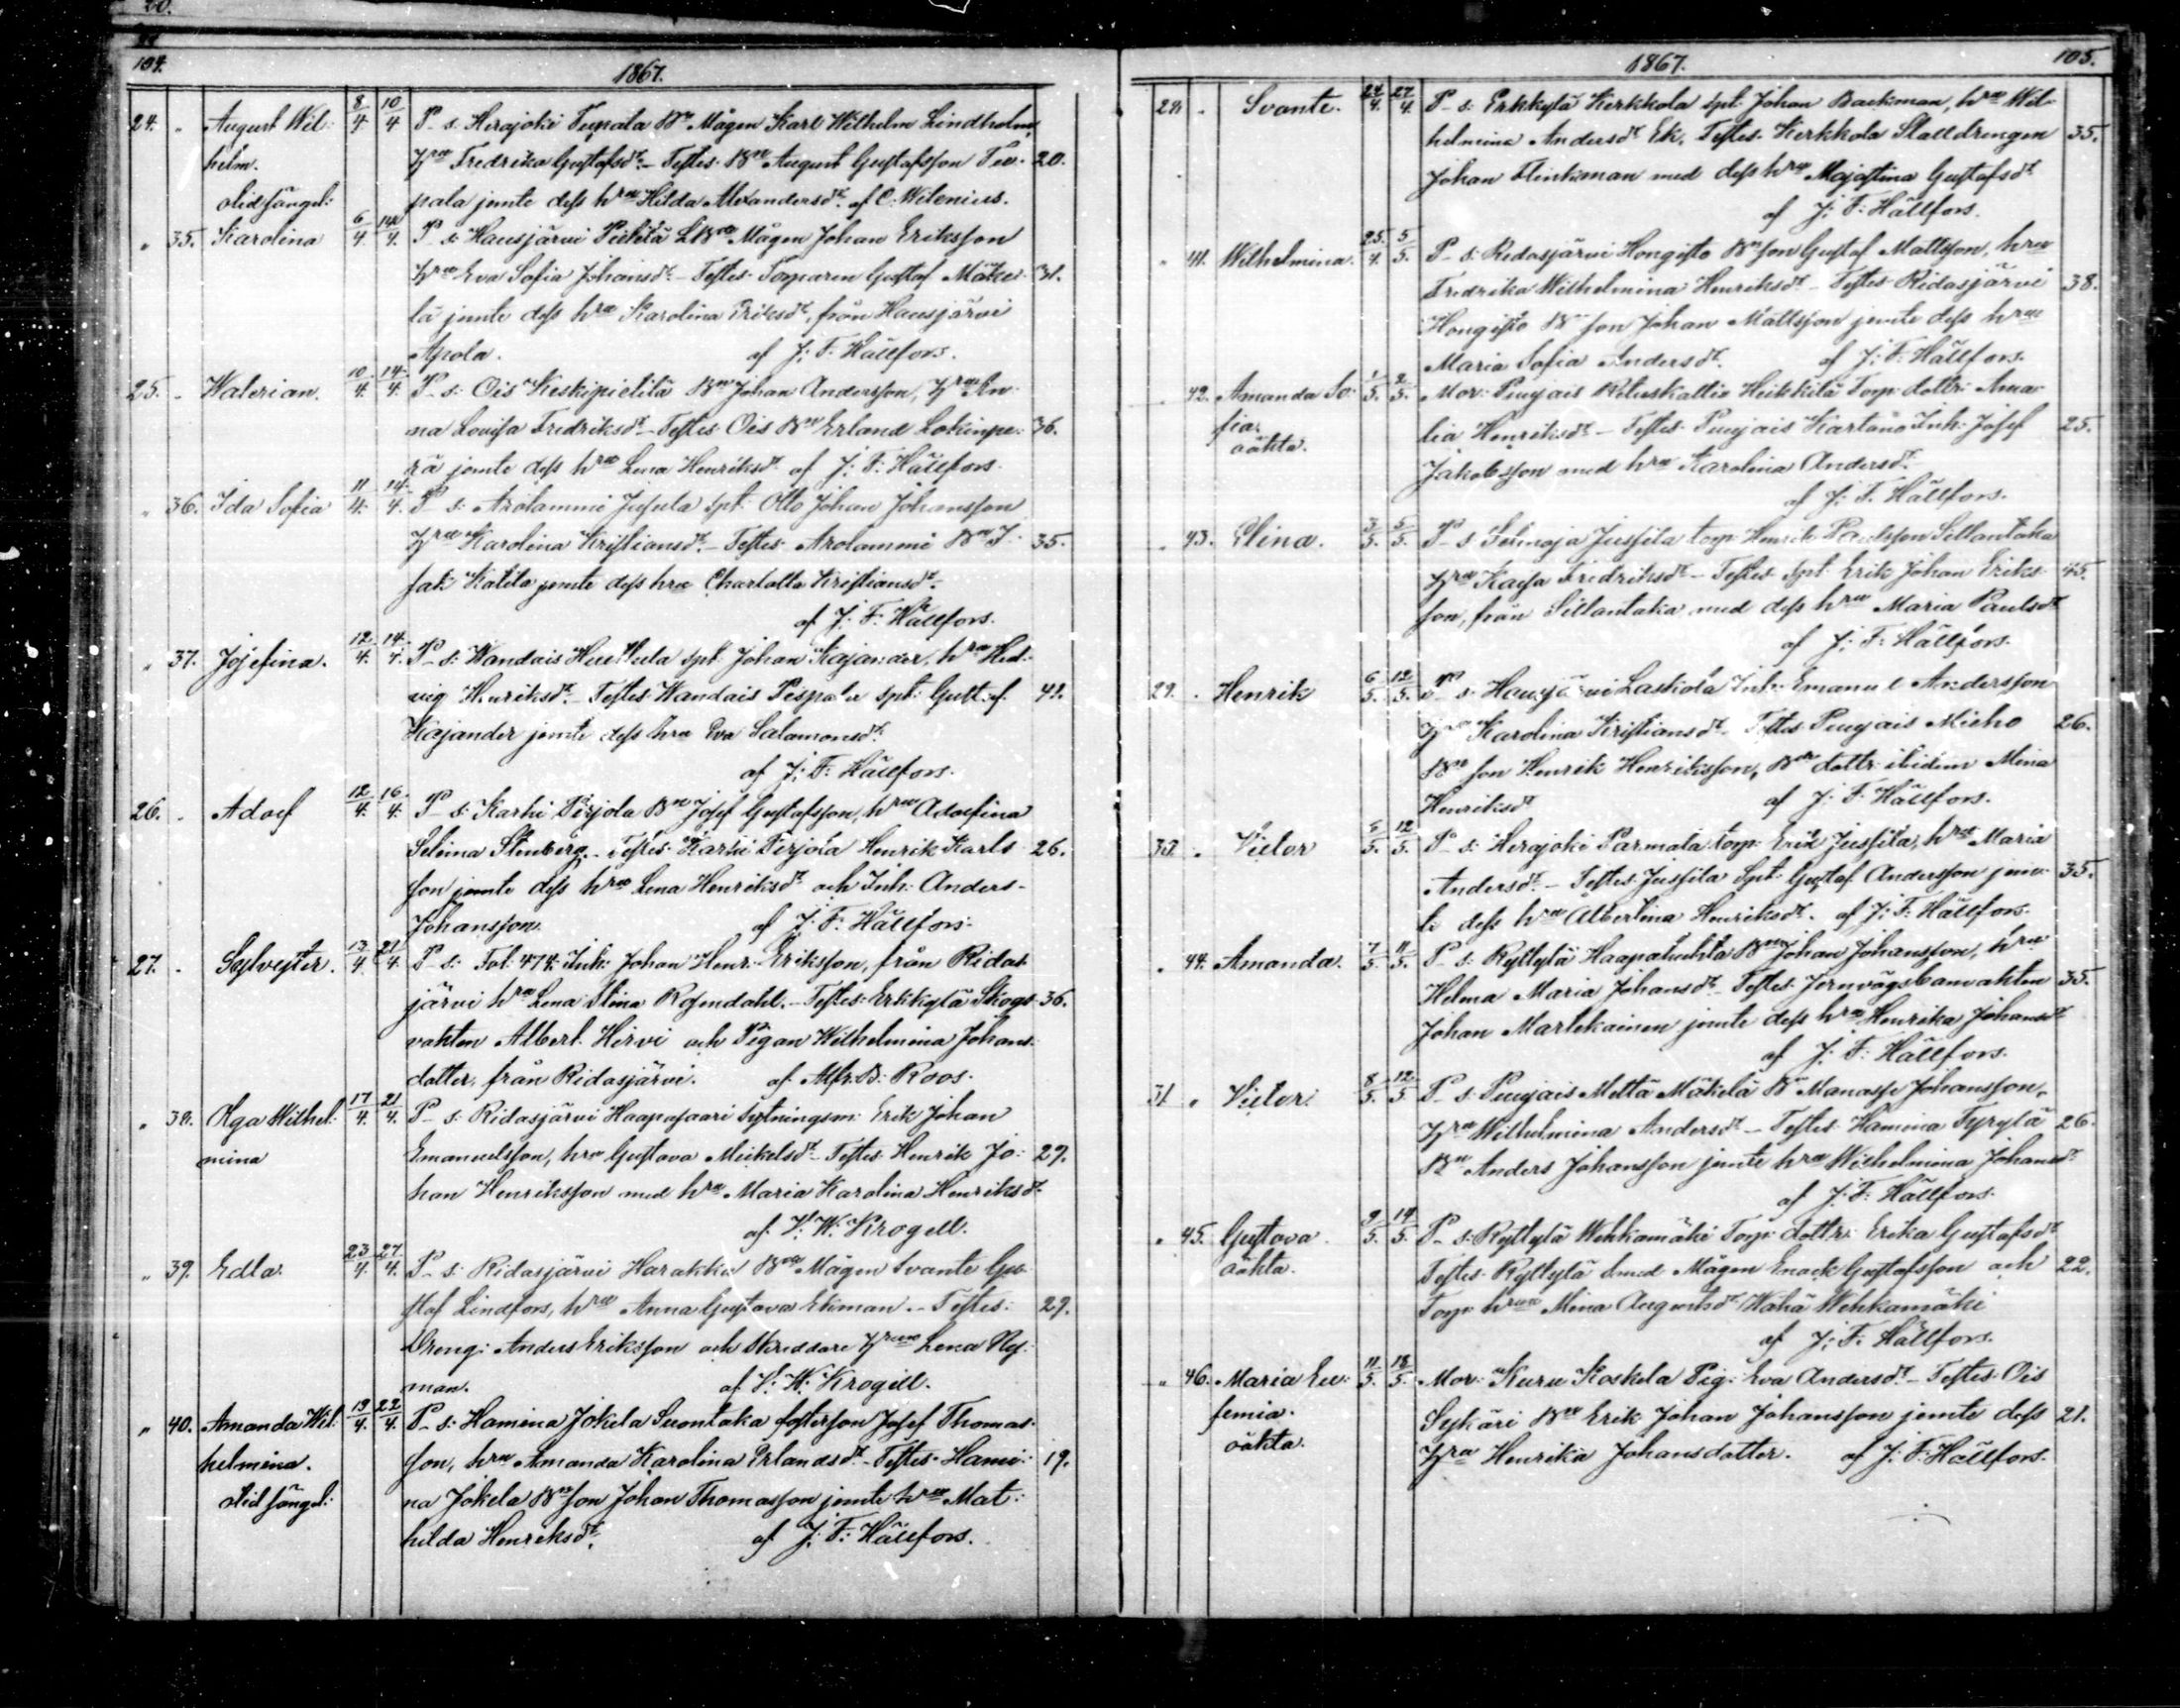 104.
1867.
24. " August Wil- 8/4 10/4 P-s: Herajoki Tupala Bn Mågen Karl Wilhelm Lindholm,
helm. hru Fredrika Gustafsdt - Testes: Bn August Gustafsson Tu- 20.
olidsängel: pala jemte dess hru Hilda Alexandersdt. af C. Wilenius.
" 35. Karolina 6/4 14/4 P-s: Hausjärvi Pietilä LBn Mågen Johan Eriksson
hru Eva Sofia Johansdt - Testes: Torparen Gustaf Mäke- 31.
lä jemte dess hru Karolina Eriksdt, från Hausjärvi
Apola. af J: F: Hällfors.
25. " Walerian. 10/4 14/4 P-s: Ois Keskipietilä Bn Johan Andersson, hru An-
na Lovisa Fredriksdt - Testes Ois Bn Erland Lokinpe- 36.
rä jemte dess hru Lena Henriksdt. af J: F: Hällfors.
" 36. Ida Sofia 11/4 14/4 P-s: Arolammi Jusula spt: Otto Johan Johansson
hru Karolina Kristiansdt - Testes: Arolammi Bn I- 35.
sak Katila jemte dess hru Charlotta Kristiansdt -
af J: F: Hällfors.
" 37. Josefina. 12/4 14/4 P-s: Wandais spt: Johan Kajander, hru Hed-
vig Henriksdt - Testes: Wandais spt: Gustaf 42.
Kajander jemte dess hru Eva Salamonsdt.
af J: F: Hällfors.
26. " Adolf 12/4 16/4 P-s: Karhi Pirjola Bn Josef Gustafsson, hru Adolfina
Selima Stenberg. - Testes: Karhi Pirjola Henrik Karls- 26.
son jemte dess hru Lena Henriksdt och Inh: Anders
Johansson. af J: F: Hällfors.
27. " Sylvester. 13/4 21/4 P-s: Fol: 474. Inh: Johan Henr: Eriksson, från Ridas-
järvi hru Lena Stina Rosendahl. - Testes: Erkkylä Skogs- 36.
vakten Albert Hirvi och Pigan Wilhelmina Johans-
dotter, från Ridasjärvi. af Alfr. B: Roos.
" 38. Olga Wilhel- 17/4 21/4 P-s: Ridasjärvi Haapasaari Sytningsm: Erik Johan
mina Emanuelsson, hru Gustava Mickelsdt - Testes: Henrik Jo- 29.
han Henriksson med hru Maria Karolina Henriksdt
af V: W: Krogell.
" 39. Edla. 23/4 27/4 P-s: Ridasjärvi Harakka Bn Mågen Svante Gu-
staf Lindfors, hru Anna Gustava Ekman. - Testes: 29.
Dreng: Anders Eriksson och Skreddare hrun Lena Ny-
man. af V: W: Krogell.
" 40. Amanda Wil- 19/4 22/4 P-s: Hamina Jokela Suontaka fosterson Josef Thomas-
helmina. son, hru Amanda Karolina Erlandsdt - Testes: Hami- 19.
olidsängel: na Jokela Bn son Johan Thomasson jemte hru Mat-
hilda Henriksdt. af J: F: Hällfors.
1867.
105.
28. " Svante. 24/4 27/4 P-s: Erkkylä Kerkkola spt: Johan Backman, hru Wil-
helmina Andersdt Ek. Testes: Kerkkola Stalldrengen 35.
Johan Flinkman med dess hru Majastina Gustafsdt
af J: F: Hällfors.
" 41. Wilhelmina. 25/4 5/5 P-s: Ridasjärvi Hongisto Bn son Gustaf Mattsson, hru
Fredrika Wilhelmina Henriksdt - Testes Ridasjärvi 38.
Hongisto Bn son Johan Mattsson jemte dess hru
Maria Sofia Andersdt. af J: F: Hällfors.
" 42. Amanda So- 1/5 2/5 Mor: Puujais Heikkilä Torp: dottr: Ama-
fia. lia Henriksdt - Testes: Puujais Kartano Inh: Josef 25.
oäkta. Jakobsson med hru Karolina Andersdt.
af J: F. Hällfors.
" 43. Elina. 3/5 5/5 P-s: Selmäja Jussila torp: Henrik Paulsson Sillantaka
hru Kajsa Fredriksdt - Testes Spt: Erik Johan Eriks- 45.
son, från Sillantaka med dess hru Maria Paulsdt
af J: F: Hällfors.
29. " Henrik 6/5 12/5 P-s: Hausjärvi Laskola Inh: Emanuel Andersson
hru Karolina Kristiansdt - Testes Puujais Mieho 26.
Bn son Henrik Henriksson, Bn dottr: ibidem Mina
Henriksdt af J: F: Hällfors.
30. " Victor 6/5 12/5 P-s: Herajoki Parmala torp: Erik Jussila, hru Maria
Andersdt - Testes: Jussila Spt: Gustaf Andersson jem- 35.
te dess hru Albertina Henriksdt. af J: F: Hällfors.
" 44. Amanda. 7/5 11/5 P-s: Ryttylä Haapahuhta Bn Johan Johansson, hru
Helena Maria Johansdt - Testes: Jernvägsbanvakten 35.
Johan Martikainen jemte dess hru Henrika Johansdt
af J: F: Hällfors.
31. " Victor. 8/5 12/5 P-s: Puujais Mattä Mäkelä Bn Manasse Johansson,
hru Wilhelmina Andersdt - Testes: Hamina Tyrylä 26.
Bn Anders Johansson jemte hru Wilhelmina Johansdt
af J: F: Hällfors.
" 45. Gustava 9/5 14/5 P-s: Ryttylä Wehkamäki Torp: dottr: Erika Gustafsdt
oäkta. Testes: Ryttylä smed Mågen Enock Gustafsson och 22.
Torp: hrun Mina Augustsdt Wähä Wehkamäki
af J: F: Hällfors.
" 46. Maria Eu- 11/5 18/5 Mor: Kuru Koskela Pig: Eva Andersdt - Testes: Ois
femia. Sykäri Bn Erik Johan Johansson jemte dess 21.
oäkta. hru Henrika Johansdotter. af J: F: Hällfors.